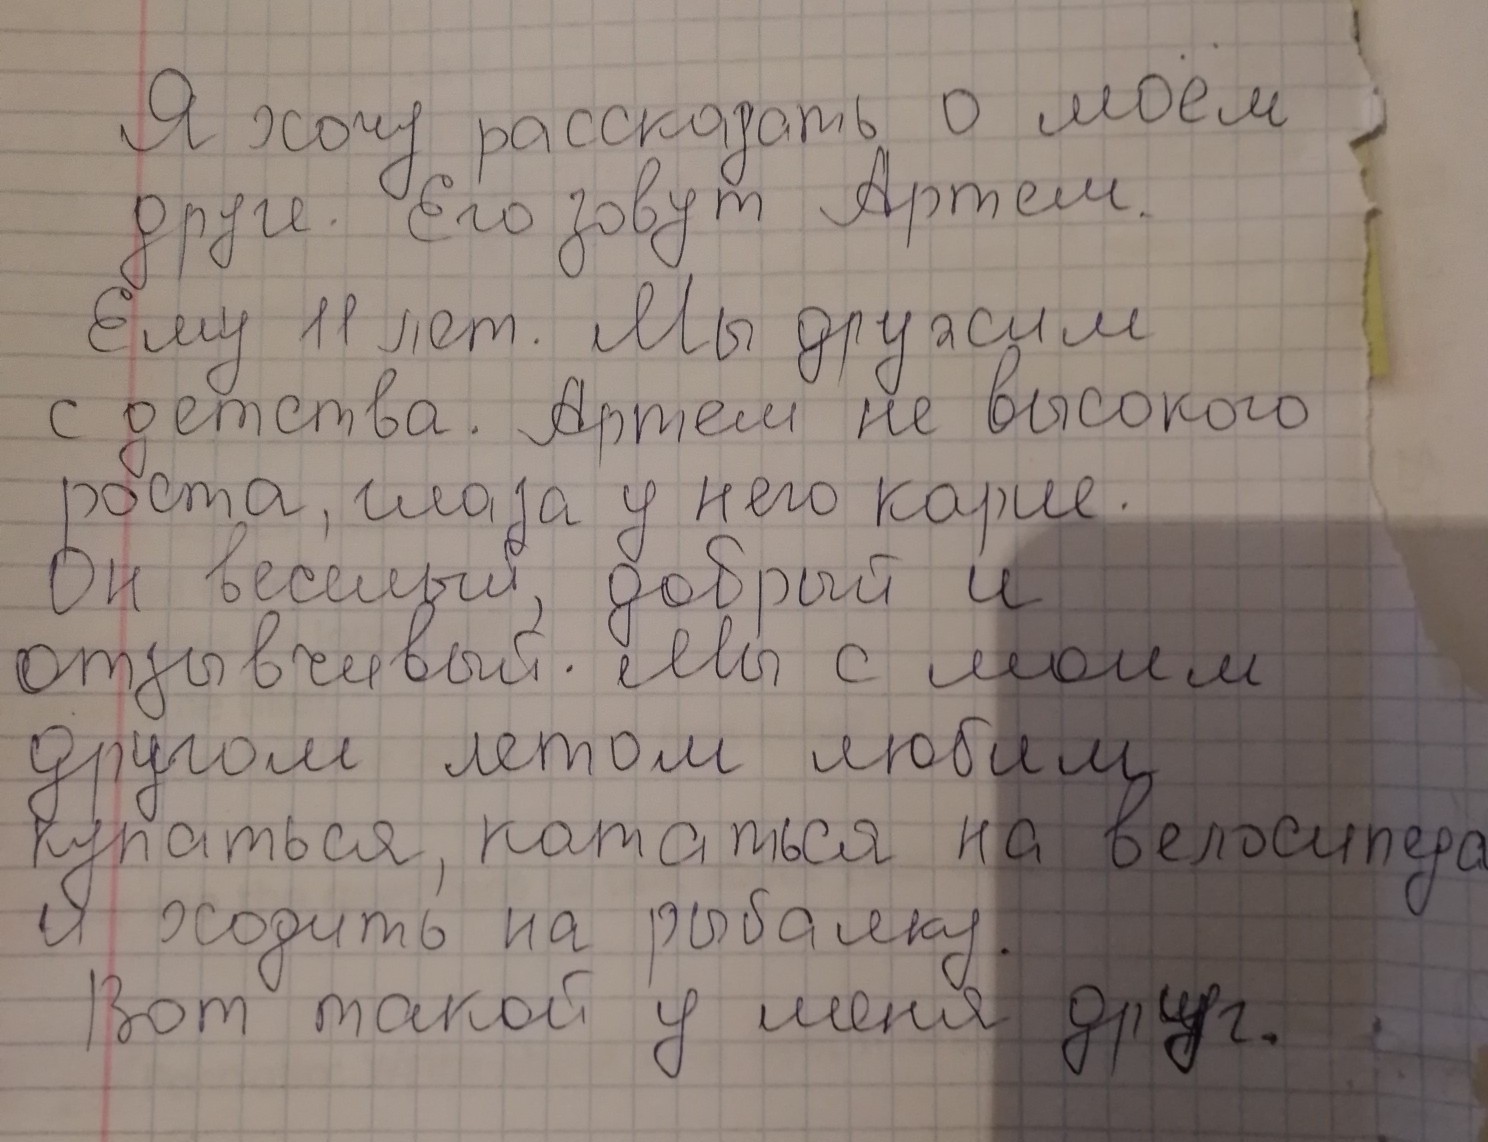 Я хочу рассказать о моём
друге. Его зовут Артем.
Ему 11 лет. Мы дружим
с детства. Артем не высокого
роста, глаза у него карие.
Он веселый, добрый и
отзывчивый. Мы с моим
другом летом любим
купаться, кататься на велосипеда
и ходить на рыбалку.
Вот такой у меня друг.